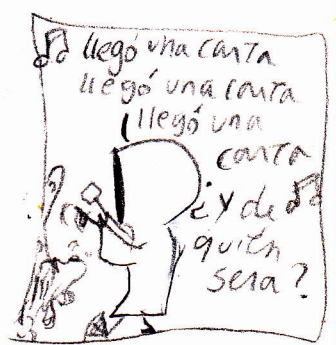 llegó una carta
llegó una carta
llegó una
carta
¿y de
quién
sera?